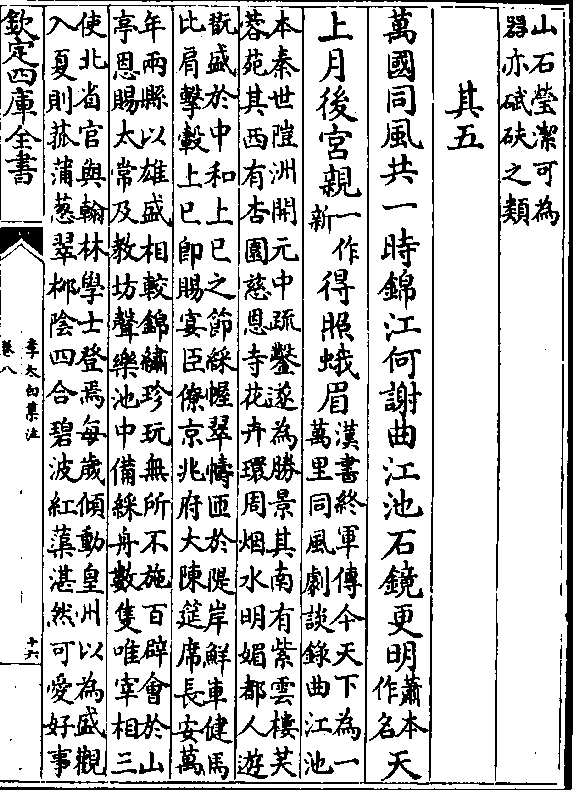 山石瑩潔可為
器亦碔砆之類
其五
萬國同風共一時錦江何謝曲江池石鏡更明蕭本作名天
上月後宮親一作新得照蛾眉漢書終軍傳今天下為一
萬里同風劇談錄曲江池
本秦世隑洲開元中疏鑿遂為勝景其南有紫雲樓芙
蓉苑其西有杏園慈恩寺花卉環周烟水明媚都人遊
翫盛於中和上巳之節綵幄翠幬匝於隄岸鮮車健馬
比肩擊轂上巳即賜宴臣僚京兆府大陳筵席長安萬
年兩縣以雄盛相較錦繡珍玩無所不施百辟會於山
亭恩賜太常及教坊聲樂池中備綵舟數隻唯宰相三
使北省官與翰林學士登焉每歲傾動皇州以為盛觀
入夏則菰蒲蔥翠栁陰四合碧波紅蕖湛然可愛好事
欽定四庫全書
李太白集注
卷八
十六